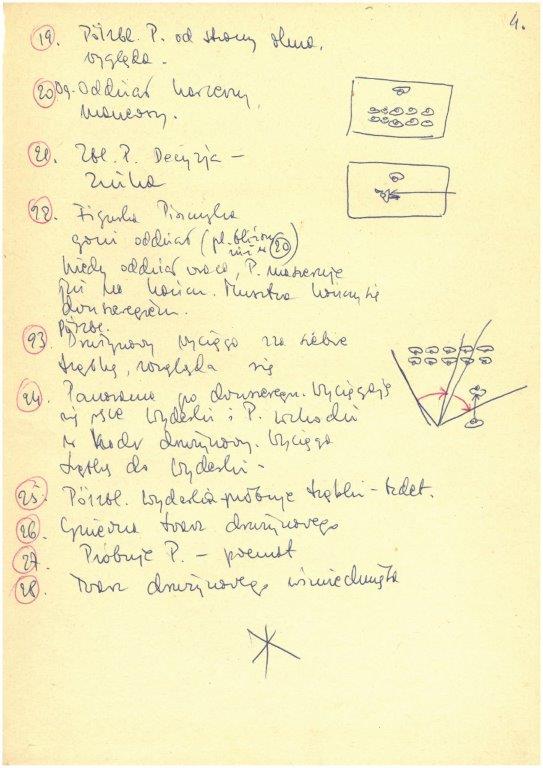 4.
19. Półzbl. P. od strony okna,
wygląda.
20 Og. Oddział harcerzy,
manewry.
21. Zbl. P. Decyzja –
znika
22. Figurka Piszczyka
goni oddział (pl. bliższy
niż w 20)
kiedy oddział wraca, P. maszeruje
już na końcu. Musztra kończy się
dwuszeregiem.
Półzbl.
23. Drużynowy wyciąga zza siebie
trąbkę, rozgląda się
24. Panorama po dwuszeregu. Wyciągają
się ręce Wyderki i P. wchodzi
w kadr drużynowy. Wyciąga
trąbkę do Wyderki –
25. Półzbl. Wyderka próbuje trąbki –
26. Gniewna twarz drużynowego
27. Próbuje P. –
28. Twarz drużynowego uśmiechnięta